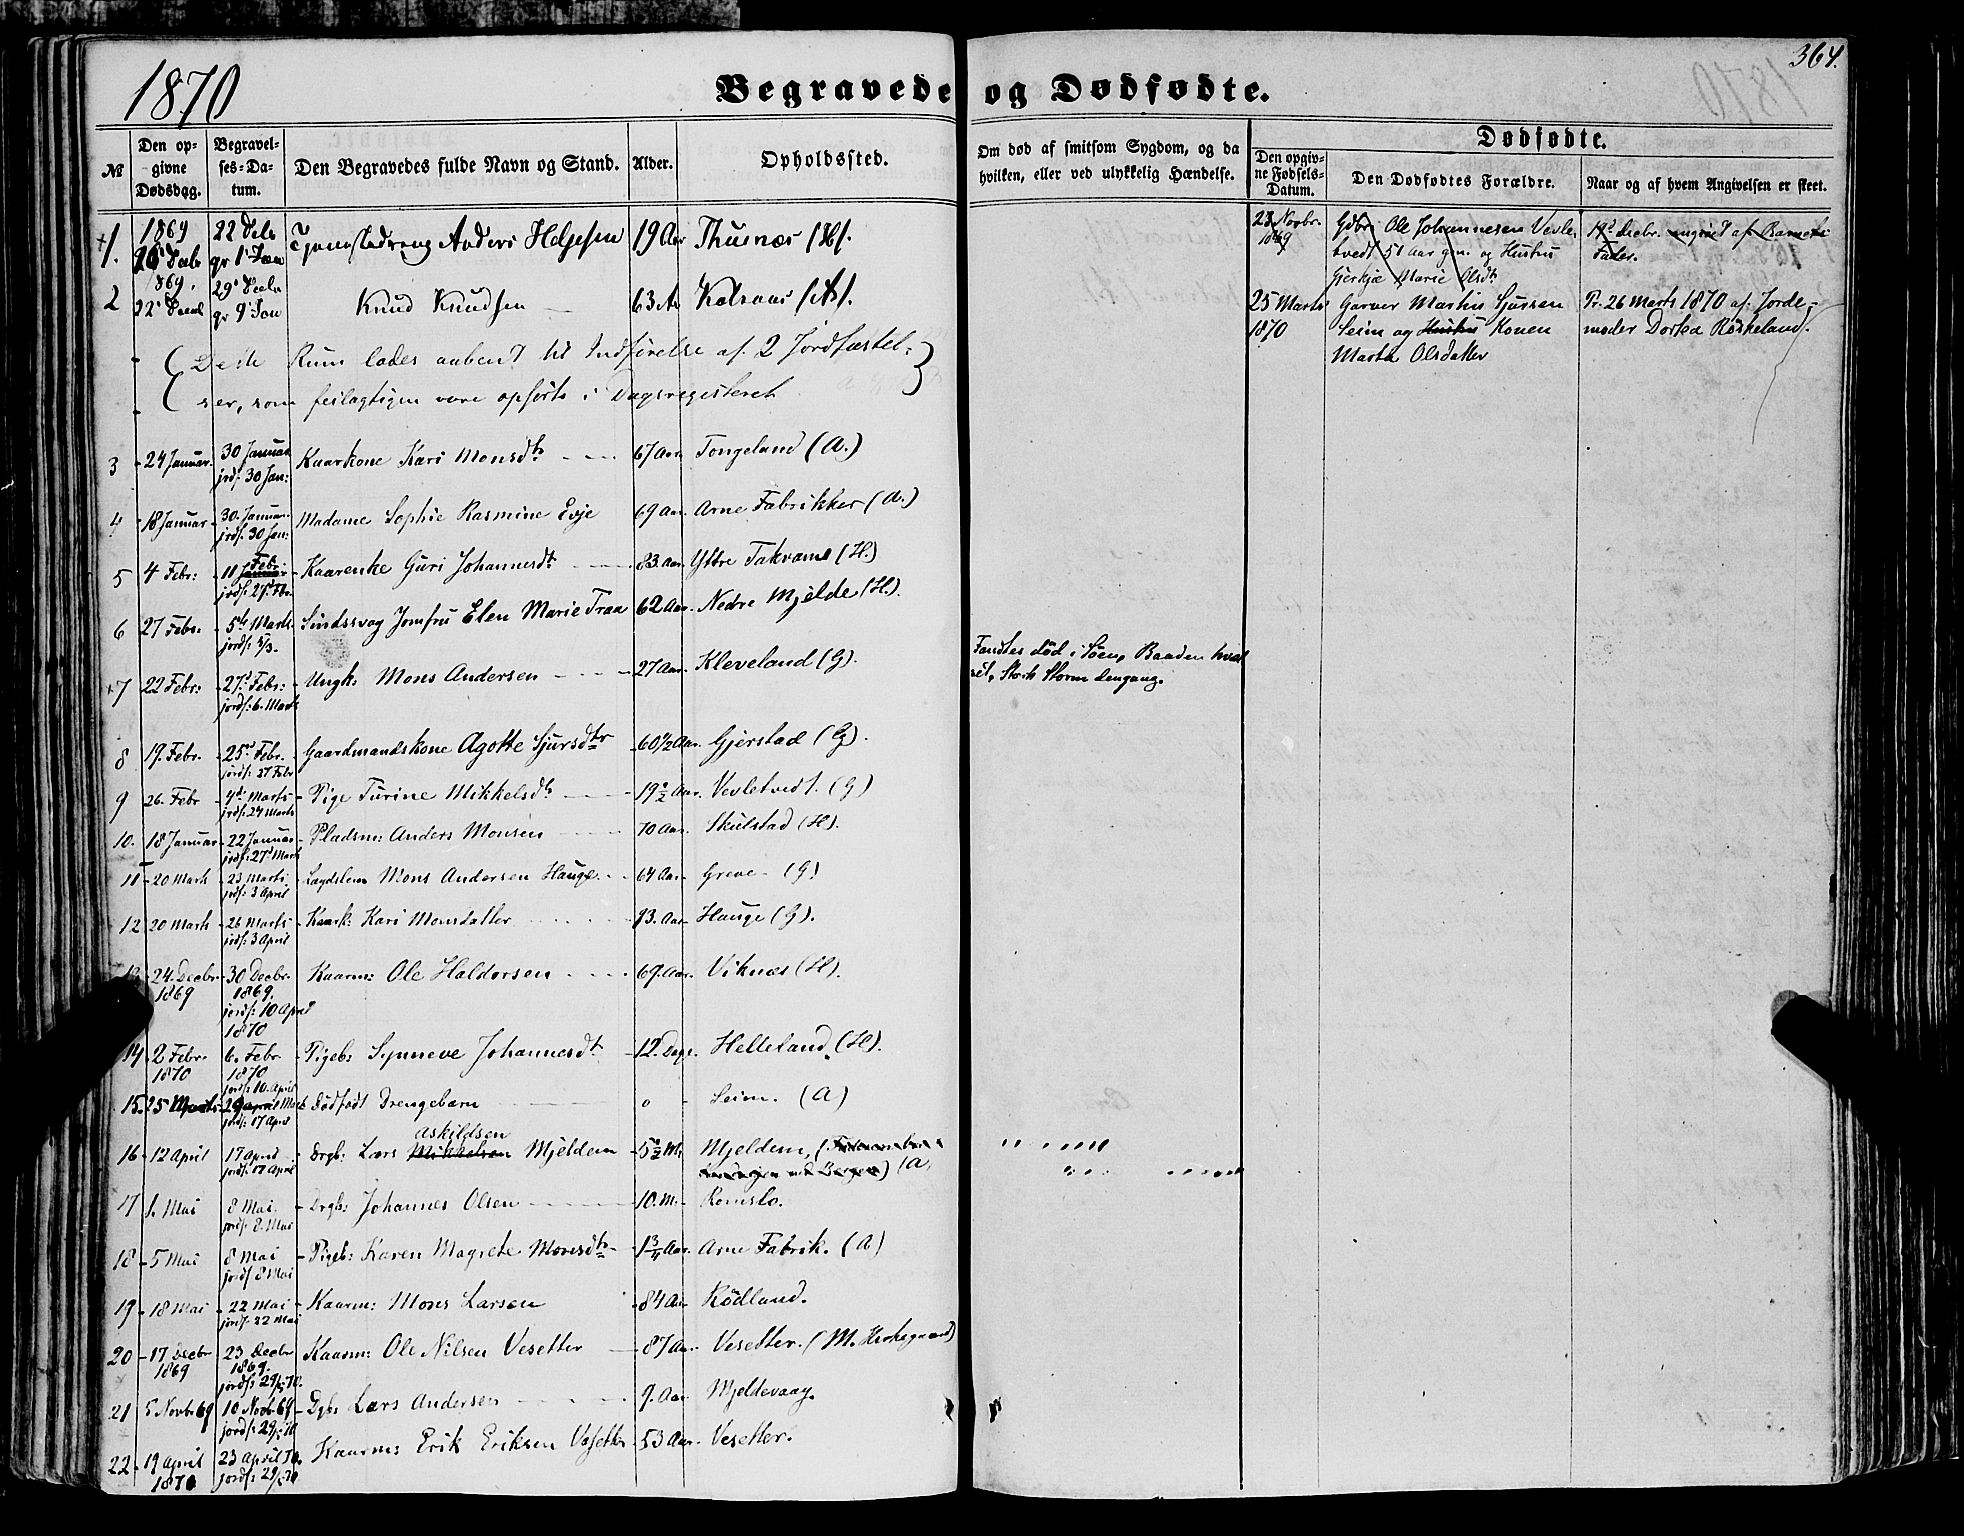 364.
1870
Begravede og Dødfødte.
№
Den opgivne Dødsdag.
Begravelses-Datum.
Den Begravedes fulde Navn og Stand.
Alder.
Opholdssted.
Om død af smitsom Sygdom, og da hvilken, eller ved ulykkelig Hændelse.
Dødfødte.
Den opgivne Fødsels-Datum.
Den Dødfødtes Forældre.
Naar og af hvem Angivelsen er skeet.
1. 1869 22 Decbr gr 1 Jan Tjenestedreng Anders Helgesen 19 Aar
2 1869. 22 Decbr 29 Decbr gr 9 Jan Knud Knudsen 63 Ar
(Dette Rum lades aabent til Indførelse af 2 Jordfæstel-
ser, som feilagtigen vare opførte i Dagsregisteret)
3 24 Januar. 30 Januar jrdf. 30 Jan: Kaarkone Kari Monsdtr 67 Aar Tongeland (A.)
4 18 Januar 30. Januar jrdf. 30 Jan: Madame Sophie Rasmine Evje 69 Aar. Arne Fabrikker (A.)
5 4 Febr: 11 Januar Febr: jrdf: 27. Fbr. Kaarenke Guri Johannesdt 83. Aar. Ytre Takvam (H.)
6 27 Febr. 5te Marts jordf: 5/3. Sindssvag Jomfru Elen Marie Traa 62 Aar. Nedre Mjelde (H.).
7 22 Febr: 27d Febr: jordf: 6. Marts Ungk: Mons Andersen 27 Aar. Kleveland (G). Fandtes død i Søen, Baaden hvæl-
vet, Stærk Storm dengang.
8 19. Febr. 25d Febr. jordf: 27 Febr Gaardmandskone Agotte Sjursdtr 60 1/2 Aar. Gjerstad (G).
9 26. Febr 4d. Marts jrdf: 27 Marts Pige Turine Mikkelsdt 19 1/2 Aar. Vevletvedt. (G)
10. 18 Januar 22 Januar jrdf: 27 Mart Pladsm: Anders Monsen 70 Aar. Skulstad (H).
11 20 Mart 23 Marts jrdf: 3 April Lægdslem Mons Andersen Hauge 64 Aar Greve (G)
12 20 Mart 26 Marts jrdf: 3 April Kaark: Kari Monsdatter 83. Aar Hauge (G).
13 24. Decbr. 1869 30 Decbr. 1869. jordf: 10 April 1870 Kaarm: Ole Haldorsen 69. Aar. Viknæs (H).
14 2 Febr. 1870 6. Febr 1870 jordf: 10. April Pigeb: Synneve Johannesdt 12. Dage. Helleland. (H).
15. 25 Marts 29 April Mart jordf: 17 April Dødfødt Drengebarn 0 Seim. (A)
16 12 April 17 April jordf: 17 April Drgb: Lars Mikkelsen Askildsen Mjeldem 5 1/2 M. Mjeldem, (A)
17 1. Mai 8 Mai. jordf: 8. Mai Drgb: Johannes Olsen 10. M. Romslo.
18 5 Mai 8 Mai jordf 8 Mai Pigeb: Karen Magrete Monsdtr 1 3/4 Aar. Arne Fabrik. (A)
19 18 Mai 22 Mai jordf: 22 Mai Kaarm: Mons Larsen 84 Aar Rödland.
20 17 Decbr 1869 23 Decbr 1869. jordf: 29/5 70. Kaarm: Ole Nilsen Vesetter 87 Aar. Vesetter. (M.
21 5 Novbr 69 10 Novbr 69 jordf: 29/5 70 Dgb: Lars Andersen 9. Aar Mjeldevaag.
22 19 April 1870 23 April 70. jordf: 29/5 70 Kaarm: Erik Eriksen Vesetter 53 Aar. Vesetter.
Novbr. 1869 Gdbr. Ole Johannesen Vevle-
tvedt 51 Aar gm. og Hustru
Marie Olsdt
Decbr. angivet af Barnets
Fader.
25 Marts 1870 Garver Martin Sjursen
Seim og Hustru Konen
Marta Olsdatter
Pr. 26 Marts 1870 af Jorde-
moder Dortea Röskeland.